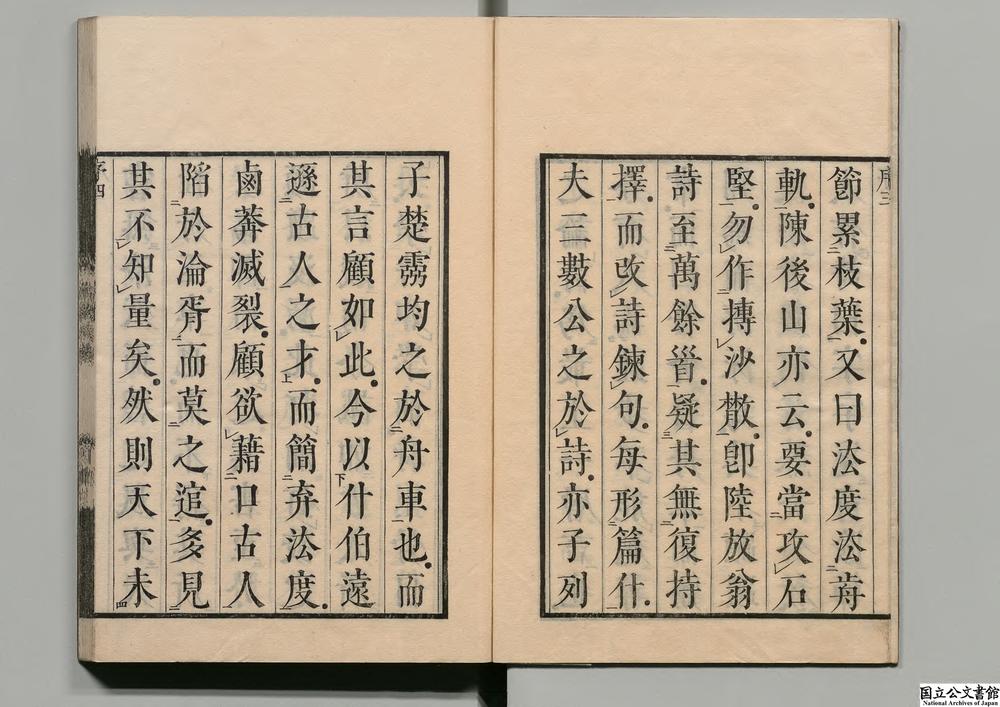 序三
節累枝葉又曰法度法前
軌陳後山亦云要當攻石
堅勿作摶沙散卽陸放翁
詩至萬餘首疑其無復持
擇而改詩鍊句每形篇什
夫三數公之於詩亦子列
子楚雩均之於舟車也而
其言顧如此今以什伯遠
遜古人之才而簡弃法度
鹵莽滅裂顧欲藉口古人
陷於淪胥而莫之逭多見
其不知量矣然則天下未
序四
国立公文書館
National Archives of Japan